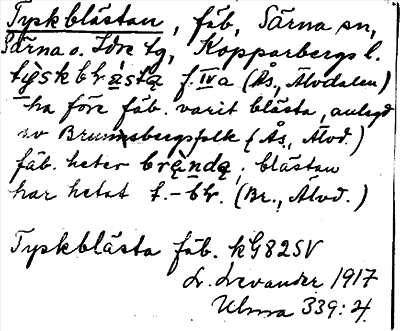 Tyskblästan, fäb, Särna sn,
Särna o. Idre tg, Kopparbergs l.
tyskblǡsta f. IV a (Ås, Älvdalen)
-ha före fäb. varit blästa, anlagd
av Brunnsbergsfolk (Ås, Älvd.)
fäb. heter brända; blästan
har hetat t.-bl-. (Br., Älvd.)
Tyskblästa fäb. kG82SV
L. Levander 1917
Ulma 339:4.